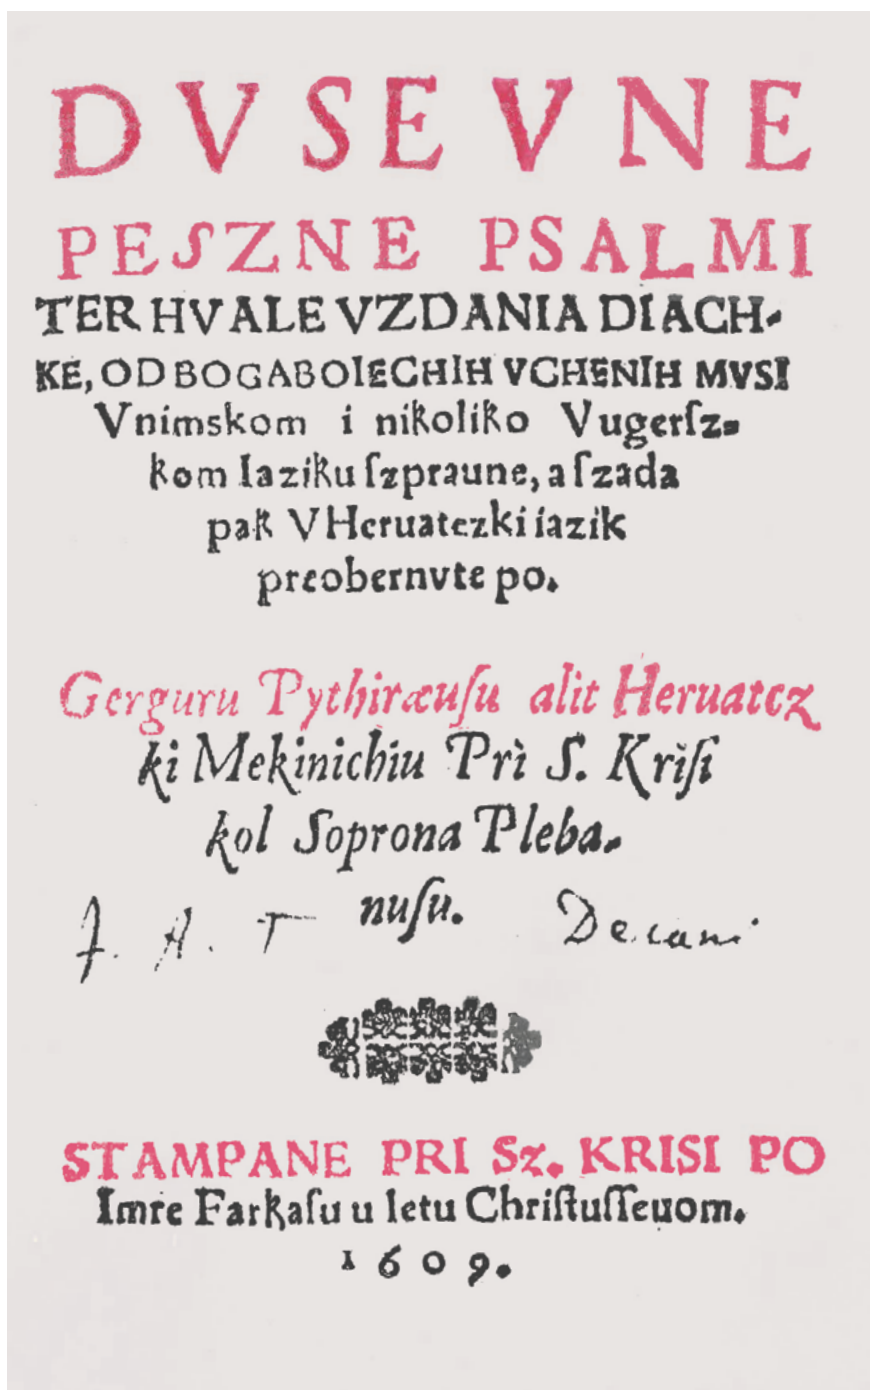 DVSEVNE
PESZNE PSALMI
TER HVALE VZDANIA DIACH-
KE, OD BOGABOIECHIH VCHENIH MVSI
Vnimskom i nikoliko Vugerſz-
kom Iaziku ſzpraune, a ſzada
pak V Heruatezki iazik
preobernvte po.
Gerguru Pythiræuſu alit Heruatcz
ki Mekinichiu Pri S. Kriſi
kol Soprona Pleba-
nuſu.
J. A. T Decani
STAMPANE PRI Sz. KRISI PO
Imre Farkaſu u letu Chriſtuſſeuom.
1609.